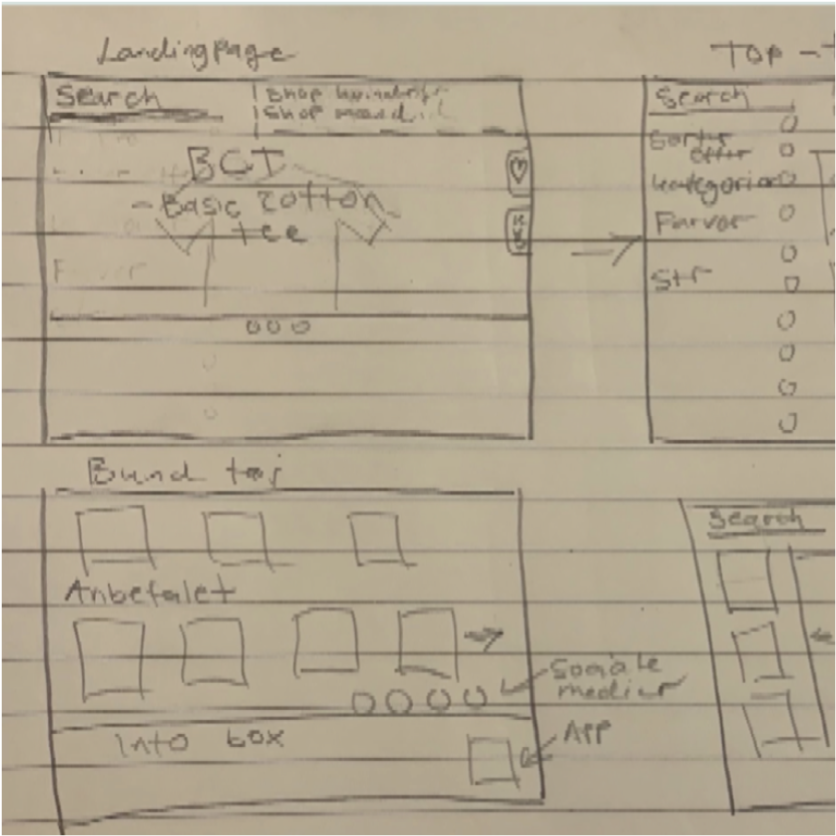 Landingpage
TOP -T
Search
Shop
Shop mænd
BCT
- Basic Cotton -
tee
Search
Sorter
efter
Kategorier
Farver
Str
Bund tøj
Anbefalet
Sociale
medier
Info box
APP
Search